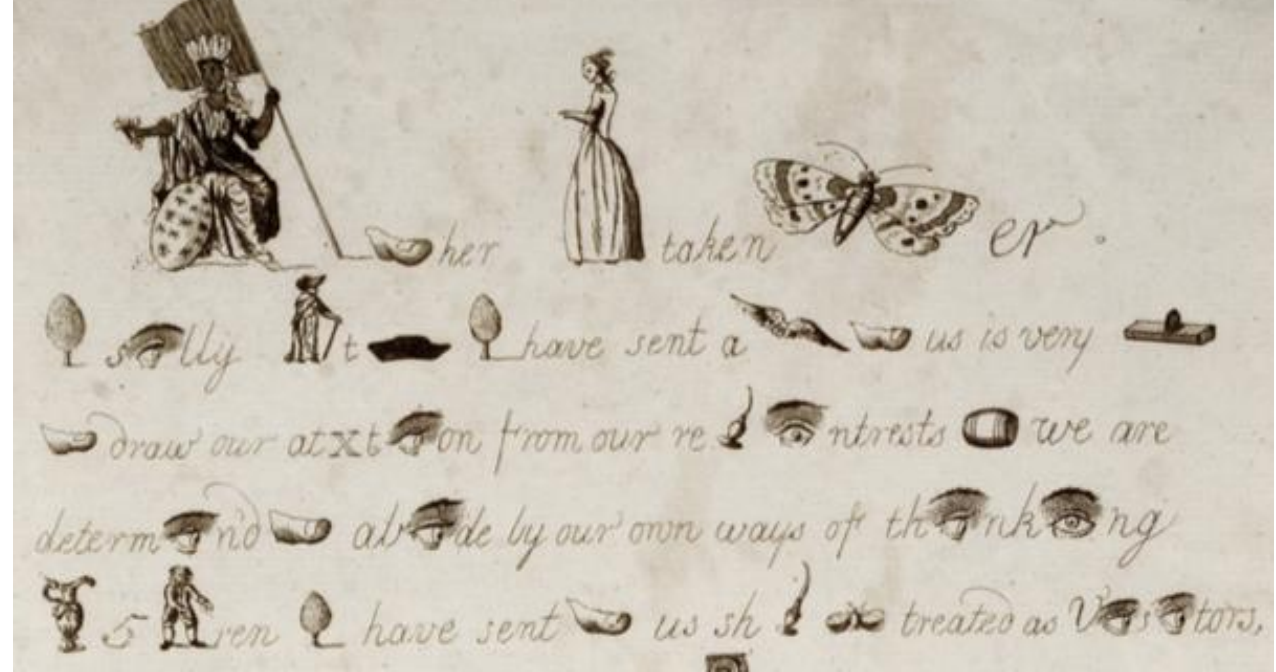 her taken er.
s lly t have sent a us is very
draw our at X t on from our re ntrests we are
determ n'd ab de by our own ways of th nk ng
5 ren have sent us sh treated as V s tors,